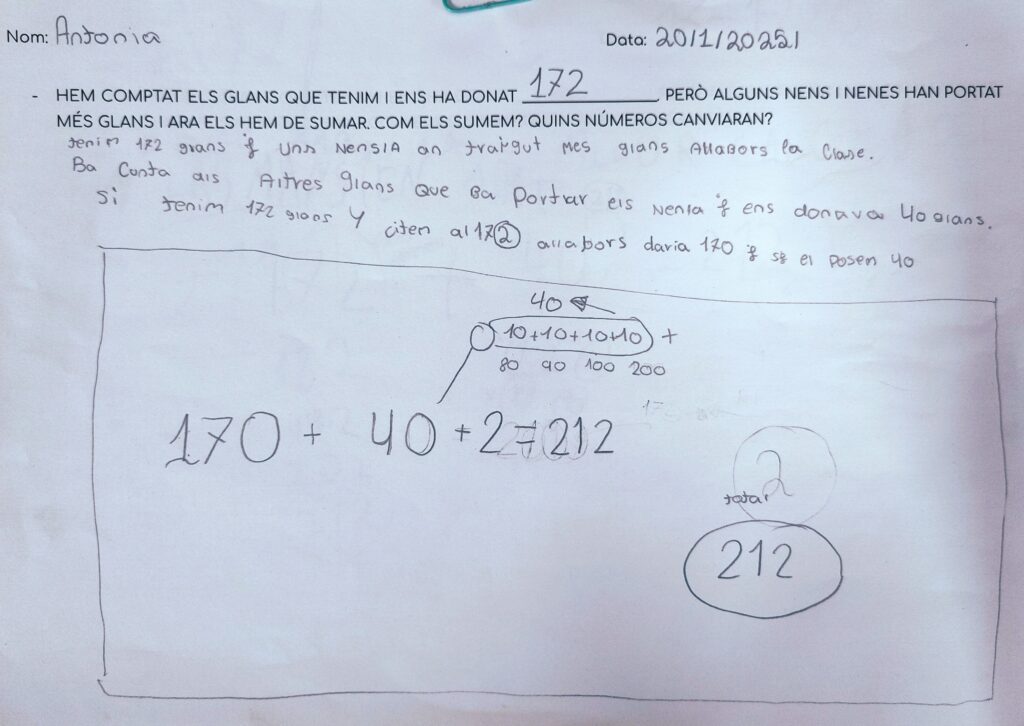 Nom: Antonia
Data: 20/1/2025
- HEM COMPTAT ELS GLANS QUE TENIM I ENS HA DONAT 172 PERÒ ALGUNS NENS I NENES HAN PORTAT
MÉS GLANS I ARA ELS HEM DE SUMAR. COM ELS SUMEM? QUINS NÚMEROS CANVIARAN?
tenim 172 glans i uns NENSIA an traigut mes glans Allabors la clase.
Ba Conta als Altres glans que Ba portar els Nenia i ens donava 40 glans.
Si tenim 172 glans Y citen al 172 allabors daria 170 i si ei posen 40
40
10+10+10+10 +
80 90 100 200
170 + 40 + 2 = 212
2
total
212